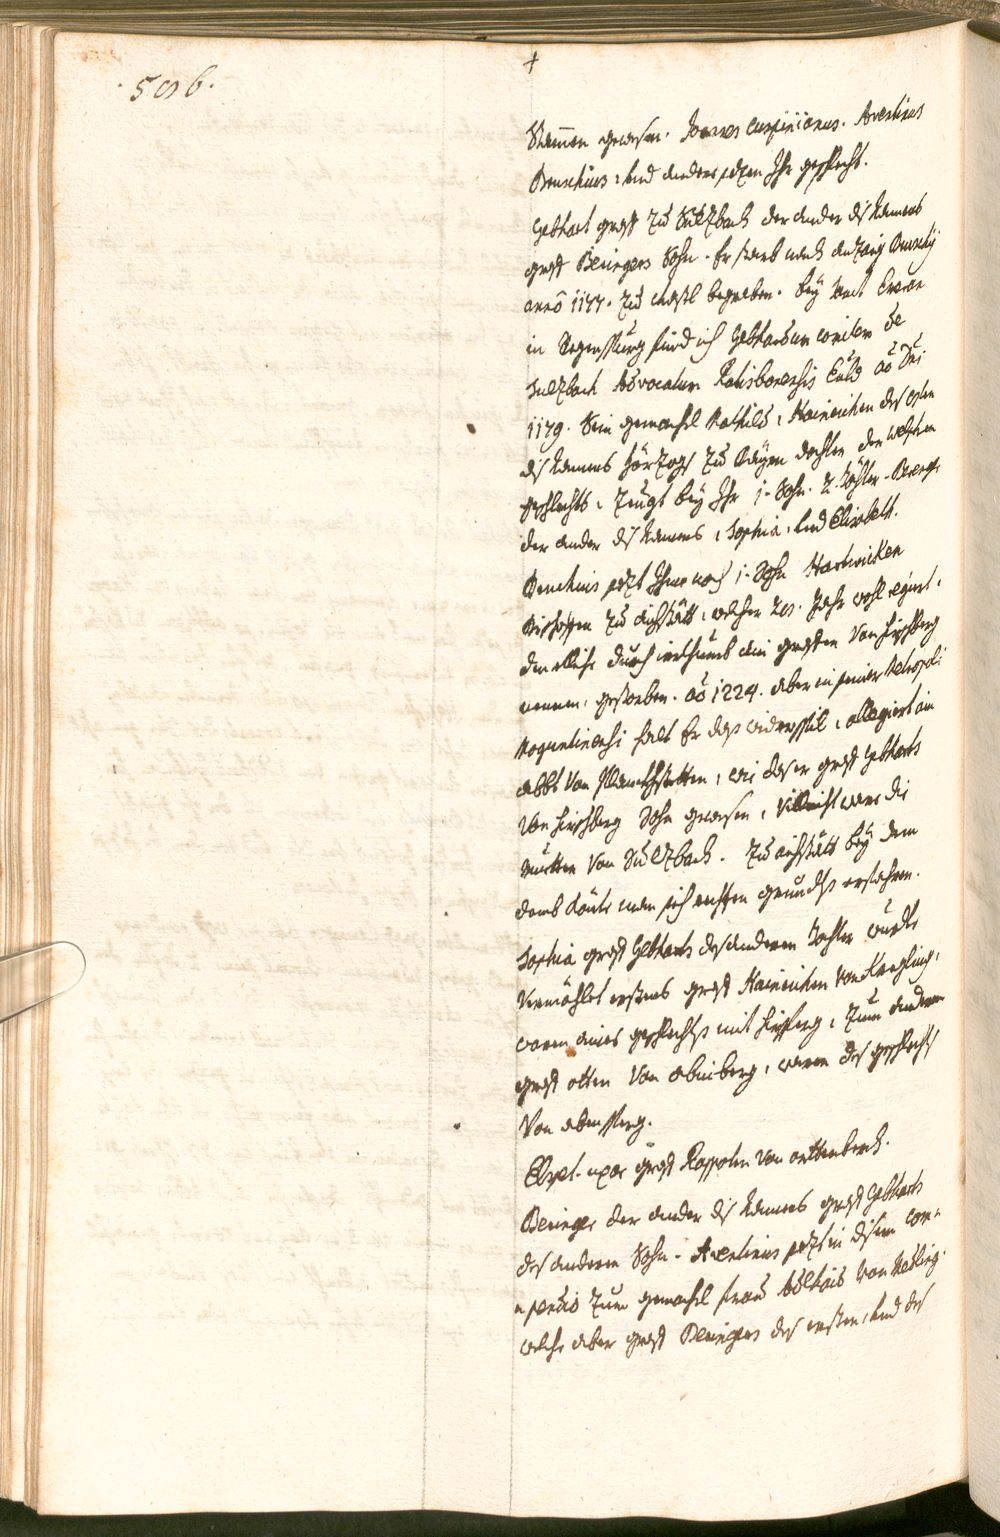 506.
+
Stammen gewesen. Joannes Cuspinianus. Aventinus
Bruschius, und andere sezen Ihr geschlecht.
Gebhart graff zu Sultzbach der ander diß Namens
graff Beringers Sohn. Er starb nach anzaig Bruschÿ
anno 1177. zu Castl begraben. beÿ Sanct
in Regenspurg find ich Gebhardum comitem de
Sulzbach Advocatum Ratisbonensis Aõ Dni
1179. Sein gemachel Mathild, Hainrichen des
diß Namens Hörzogs zu Bayrn dochter der welschen
geschlechts, zeugt beÿ Ihr 1. Sohn. 2. döchter. Beringer
der ander diß Namens, Sophia, und Elisabeth.
Bruschius sezt Ihme noch 1. Sohn Hartwicken
Bischoffen zu Aichstätt, welcher Jahr wohl regiert,
durch ein graffen von Hirschberg
nennen, gestorben. aõ 1224. aber in seiner Metropoli
Moguntinensi halt Er das widerspil, allegiert ain
abbt von, wie das er graff Gebharts
von Hirschberg Sohn gewesen, Villeicht ware die
Mutter von Sulzbach. Zu aichstätt beÿ dem
domb könte man sich rechten grundts erfahren.
Sophia graff Gebharts des anderen dochter wurde
Vermählet erstens graff Hainrichen von Kregling,
waren aines geschlechts mit Hirschperg, zum anderen
graff otten von abenberg, waren des geschlechts
Von abensperg.
uxor graff Rappoten von orttenberch.
Beringer der ander diß Namens graff Gebharts
des anderen Sohn. Aventinus sezt in disem com-
pendio zum gemachel Frau Adlhaid von
welche aber graff Beringers des ersten, und des